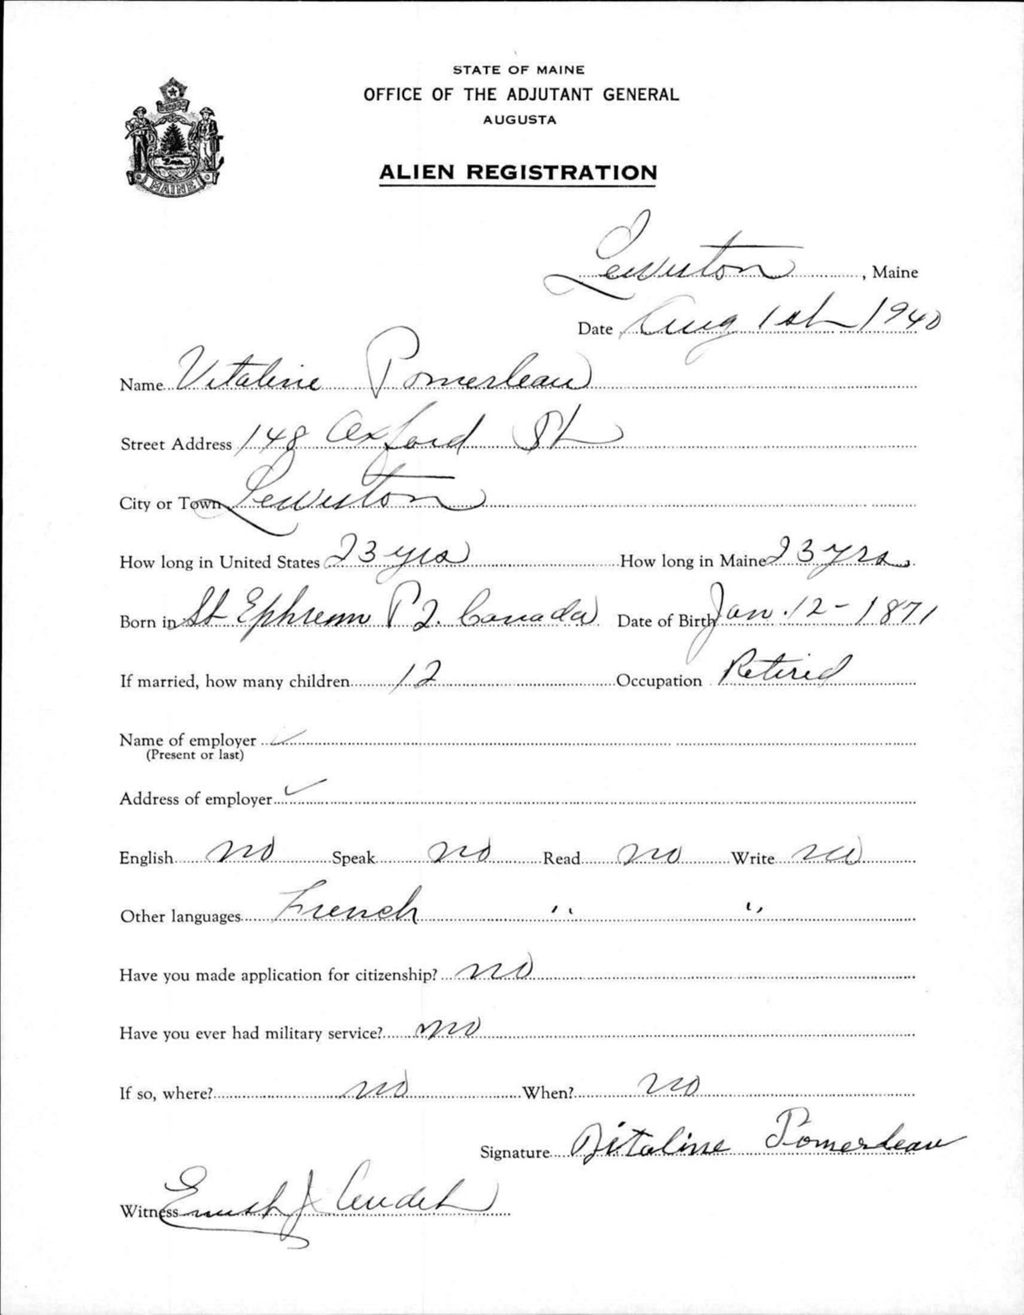 STATE OF MAINE
OFFICE OF THE ADJUTANT GENERAL
AUGUSTA
ALIEN REGISTRATION
MAINE
Lewiston, Maine
Date Aug 1st 1940
Name Vitaline Pomerleau
Street Address 148 Oxford St
City or Town Lewiston
How long in United States 23 yrs How long in Maine 23 yrs
Born in St Ephrem P Q. Canada Date of Birth Jan. 12 - 1871
If married, how many children 12 Occupation Retired
Name of employer ✓
(Present or last)
Address of employer ✓
English no Speak no Read no Write no
Other languages French " "
Have you made application for citizenship? no
Have you ever had military service? no
If so, where? no When? no
Signature Vitaline Pomerleau
Witness J Audet